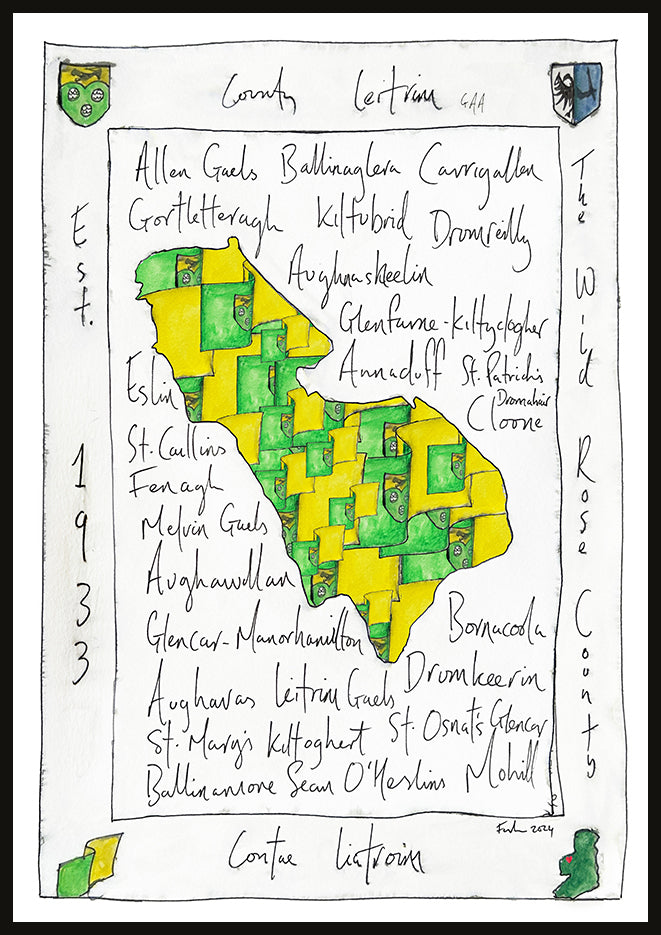 County Leitrim GAA
Allen Gaels Ballinaglera Carrigallen
Gortletteragh Kiltubrid Drumreilly
Aughnasheelin
Glenfarne-Kiltyclogher
Annaduff St. Patrick's
Dromahair
Eslin
Cloone
St. Caillins
Fenagh
Melvin Gaels
Aughawillan
Glencar-Manorhamilton
Bornacoola
Aughavas Leitrim Gaels Drumkeerin
St. Mary's Kiltoghert St. Osnat's Glencar
Ballinamore Sean O'Heslins Mohill
Est. 1933
The Wild Rose County
2024
Contae Liatroim